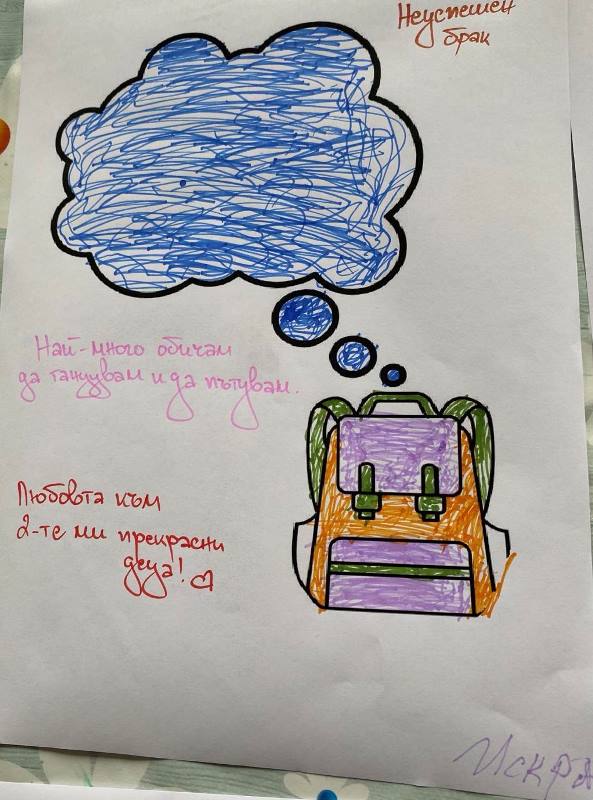 Неуспешен
брак
Най-много обичам
да танцувам и да пътувам.
Любовта към
2-те ми прекрасни
деца!
Искра